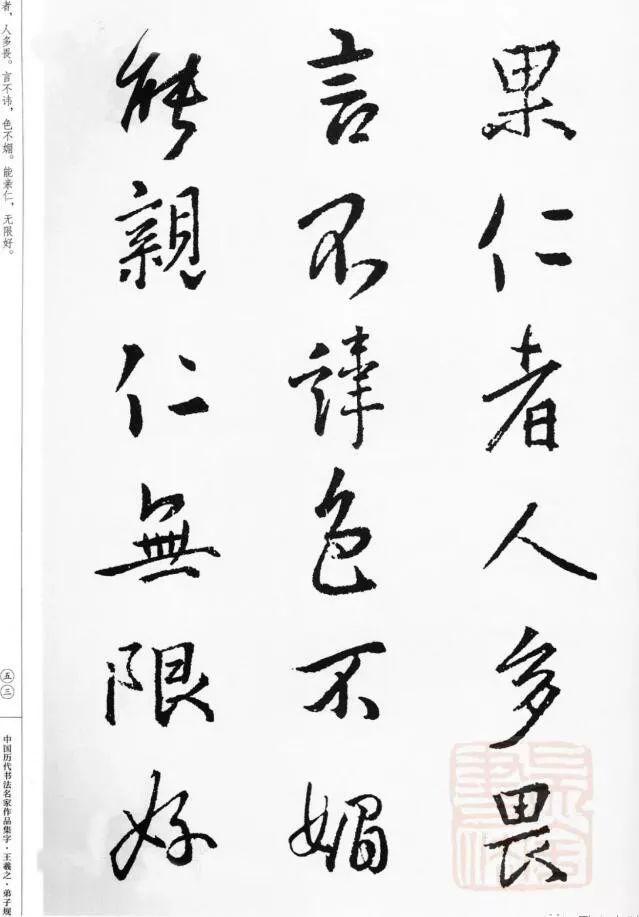 果仁者人多畏
言不諱色不媚
能親仁無限好
者，人多畏。言不讳，色不媚。能亲仁，无限好。
五三
中国历代书法名家作品集字·王羲之·弟子规